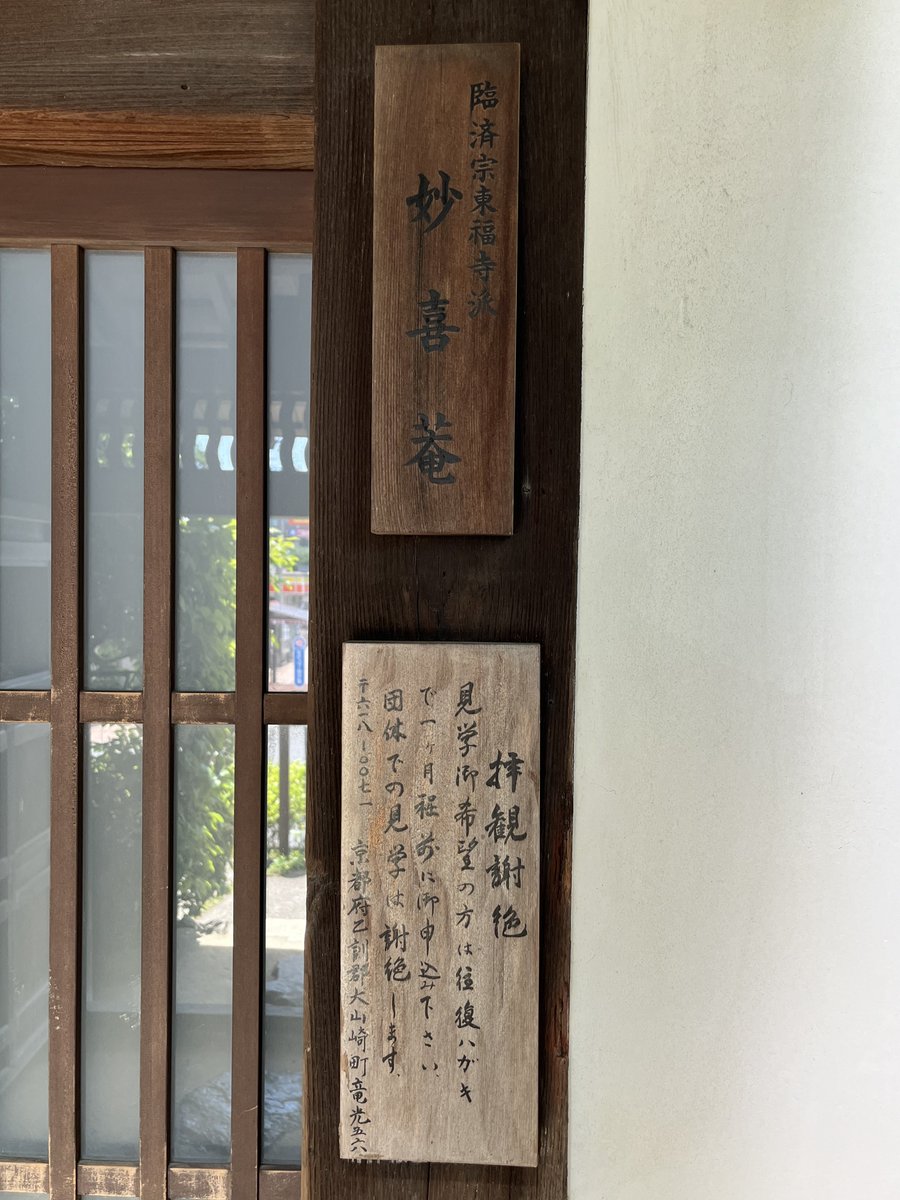 臨済宗東福寺派
妙喜菴
拝観謝絶
見学御希望の方は往復ハガキ
で一ヶ月程前に御申込み下さい、
団体での見学は謝絶します、
〒六一八-〇〇七一 京都府乙訓郡大山崎町竜光五六